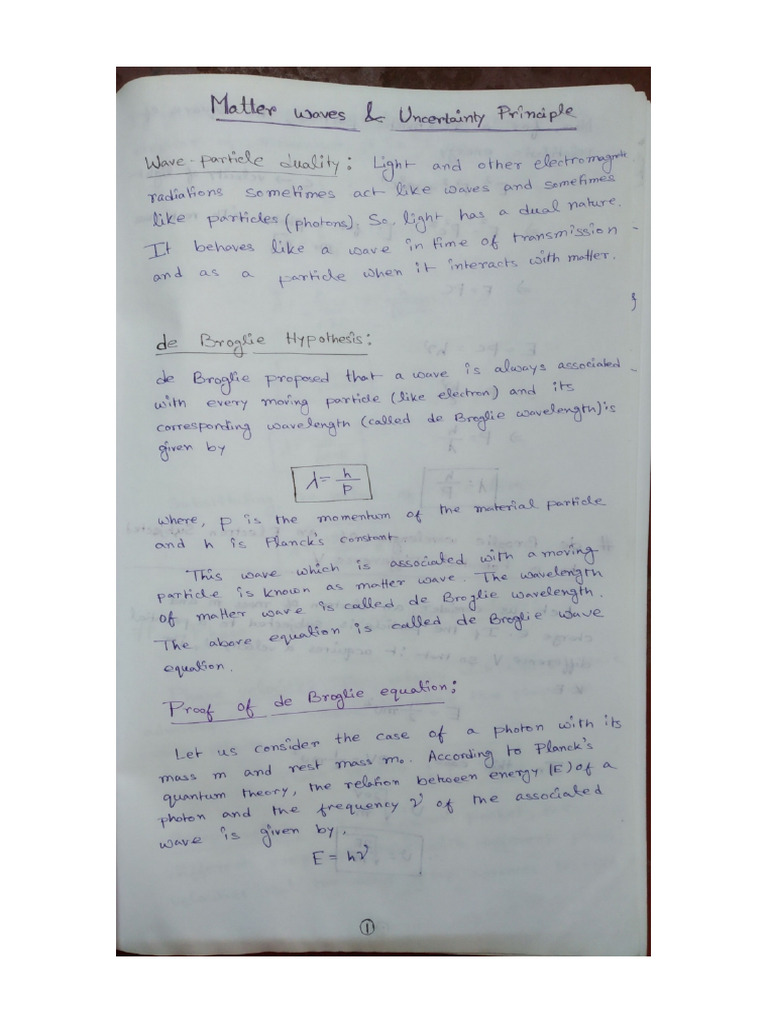 Matter waves & Uncertainty Principle
Wave-particle duality: Light and other electromagnetic
radiations sometimes act like waves and sometimes
like particles (photons). So, light has a dual nature.
It behaves like a wave in time of transmission
and as a particle when it interacts with matter.
de Broglie Hypothesis:
de Broglie proposed that a wave is always associated
with every moving particle (like electron) and its
corresponding wavelength (called de Broglie wavelength) is
given by
λ = h/p
where, p is the momentum of the material particle
and h is Planck's constant
This wave which is associated with a moving
particle is known as matter wave. The wavelength
of matter wave is called de Broglie wavelength.
The above equation is called de Broglie wave
equation.
Proof of de Broglie equation:
Let us consider the case of a photon with its
mass m and rest mass m₀. According to Planck's
quantum theory, the relation between energy (E) of a
photon and the frequency ν of the associated
wave is given by,
E = hν
1